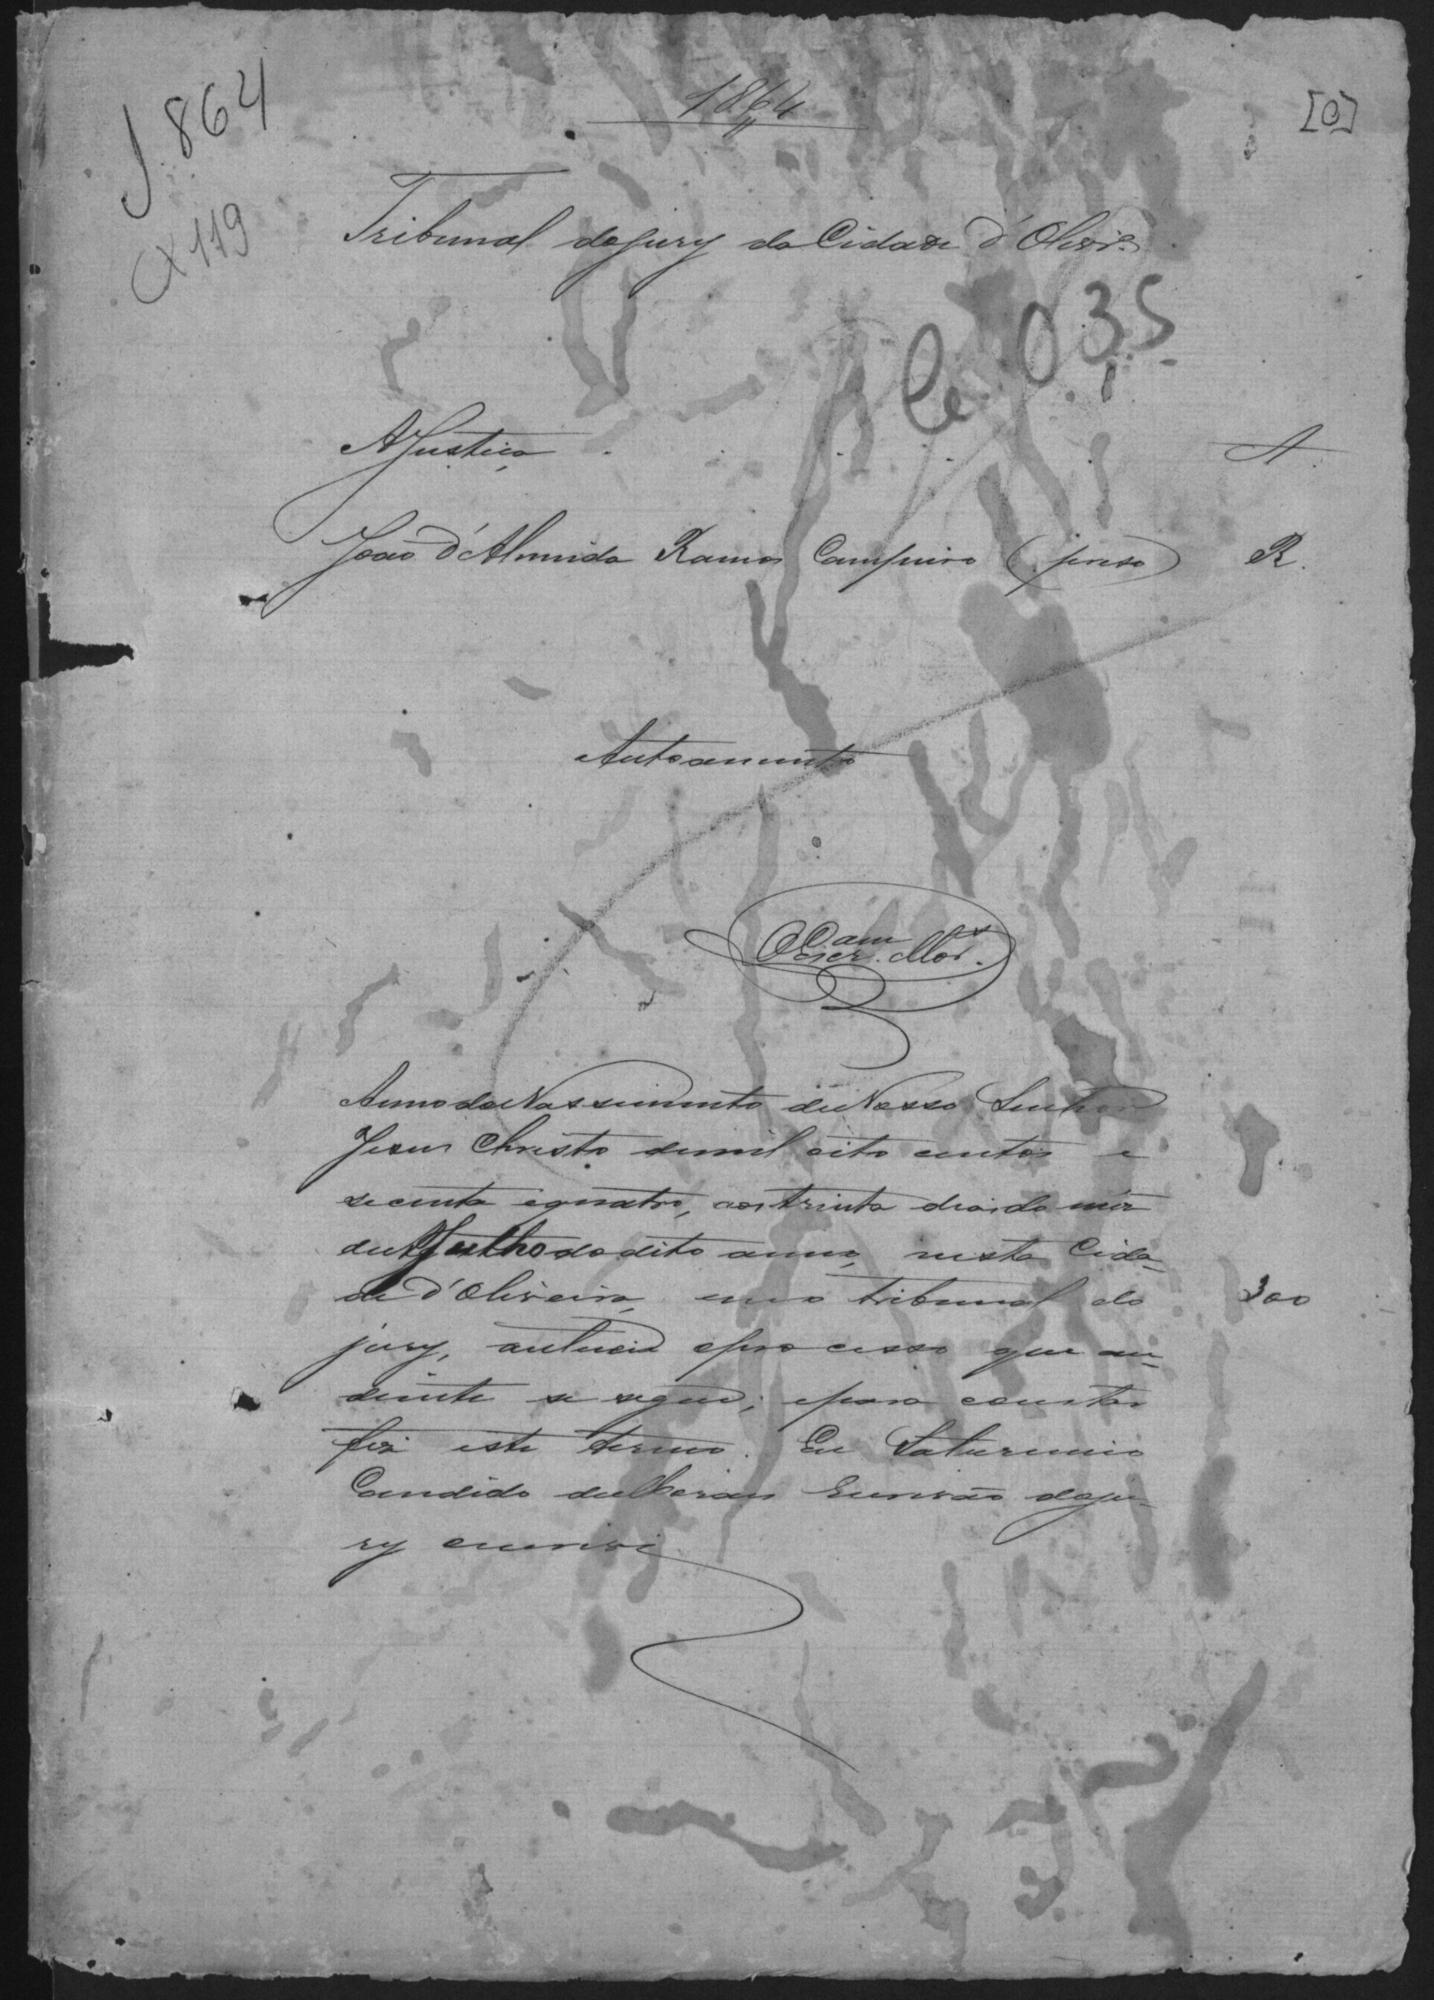 J 864
CX 119
1864
[0]
Tribunal do jury da Cidade d'Olivrª
035
A Justiça A.
João d'Almeida Ramos Campeiro (preso) R.
Autoamento
Oescr. Mor.
Anno do Nassimento de Nosso Senhor
Jesus Christo de mil oito centos e
secenta e quatro, aos trinta dias do mez
de Julho do dito anno, nesta Cida-
de d'Oliveira, em o tribunal do 300
jury, autuei o processo que au-
diente se segue; e para constar
fiz este termo. Eu Saturnino
Candido de Escrivão do ju-
ry escrevi